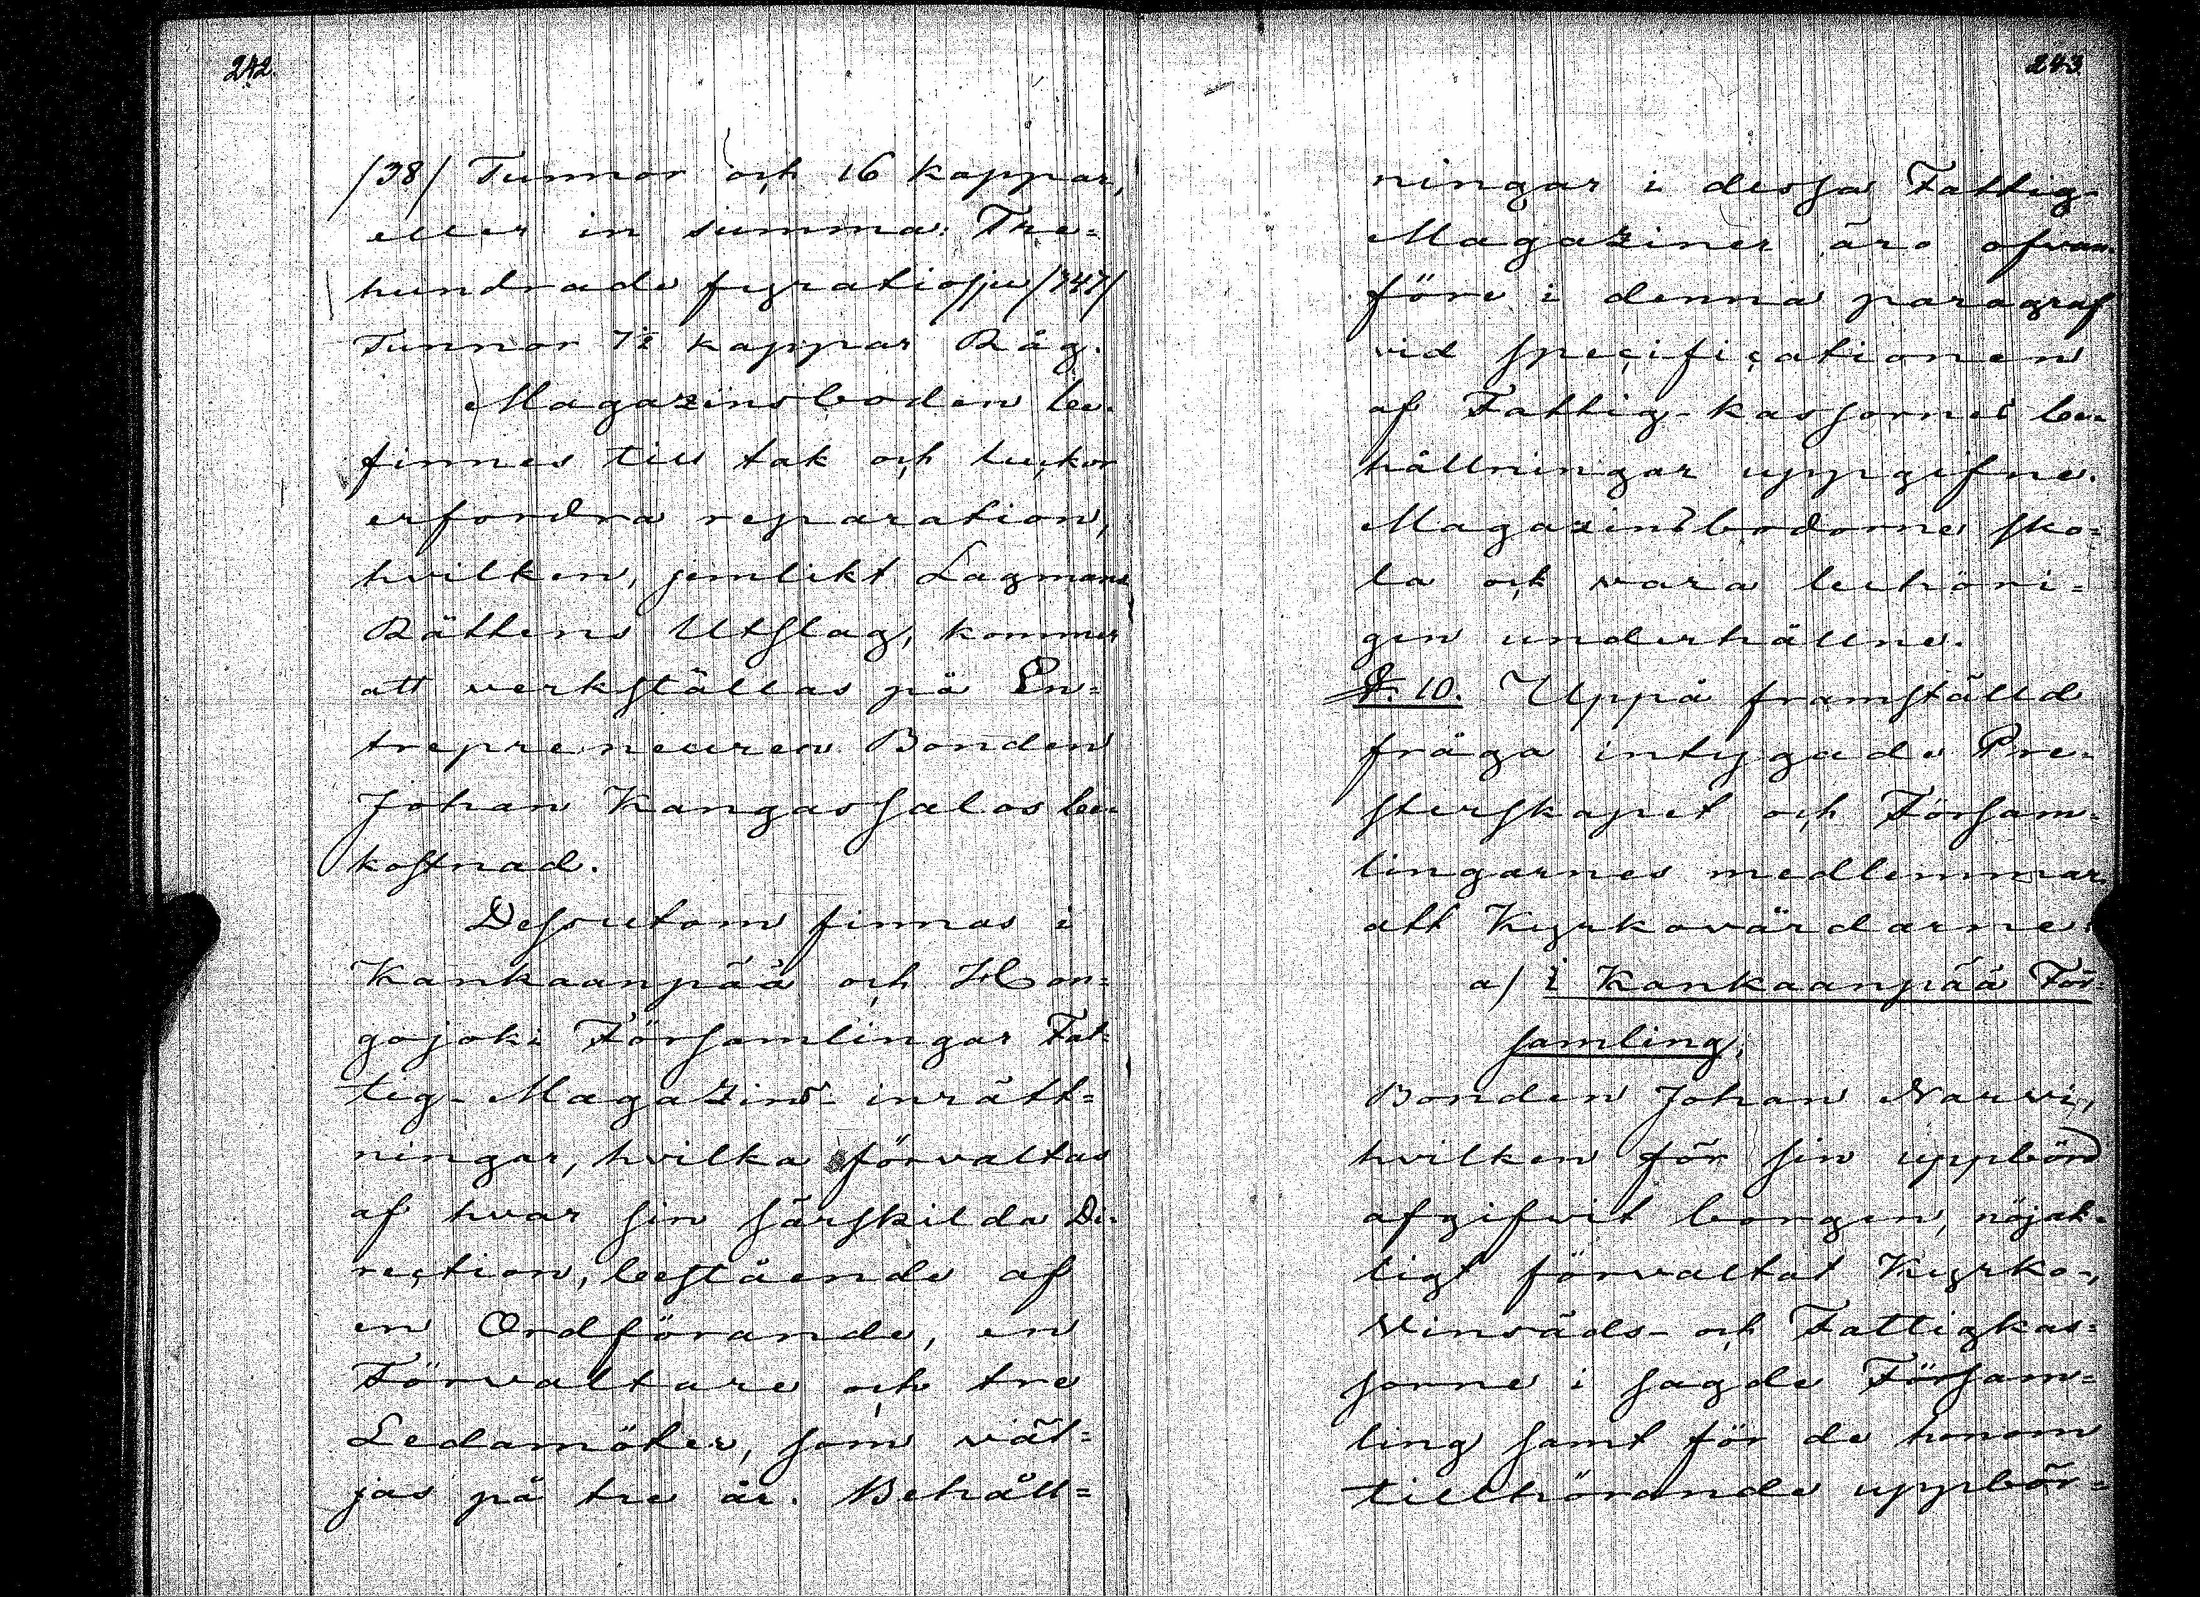 242.
/38/ Tunnor och 16 kappar,
eller in summa: Tre=
hundrade fyratiosju /347/
Tunnor 7½ kappar Råg.
Magazinsboden be-
finnes till tak och luckor
erfordra reparation,
hvilken, jemlikt Lagmans
Rättens Utslag, kommer
att verkställas på En=
trepreneuren Bonden
Johan Kangassalos be-
kostnad.
Dessutom finnas i
Kankaanpää och Hon=
gojoki Församlingar Fat=
tig-Magazins-inrätt=
ningar, hvilka förvaltas
af hvar sin särskilda Di-
rection, bestående af
en Ordförande, en
Förvaltare och tre
Ledamöter, som väl=
jas på tre år. Behåll=
243.
ningar i dessa Fattig-
Magaziner äro ofvan-
före i denna paragraf
vid specificationen
af Fattig-kassornes be-
hållningar uppgifne.
Magazinsbodorne sko=
la ock vara behöri=
gen underhållne.
§. 10. Uppå framställd
fråga intygade Pre-
sterskapet och Försam-
lingarnes medlemmar
att Kyrkovärdarne:
a/ i Kankaanpää För-
samling,
Bonden Johan Narwi,
hvilken för sin uppbörd
afgifvit borgen, nöjak-
ligt förvaltat Kyrko-,
Vinsäds- och Fattigkas=
sorne i sagde Försam=
ling samt för de honom
tillhörande uppbör=